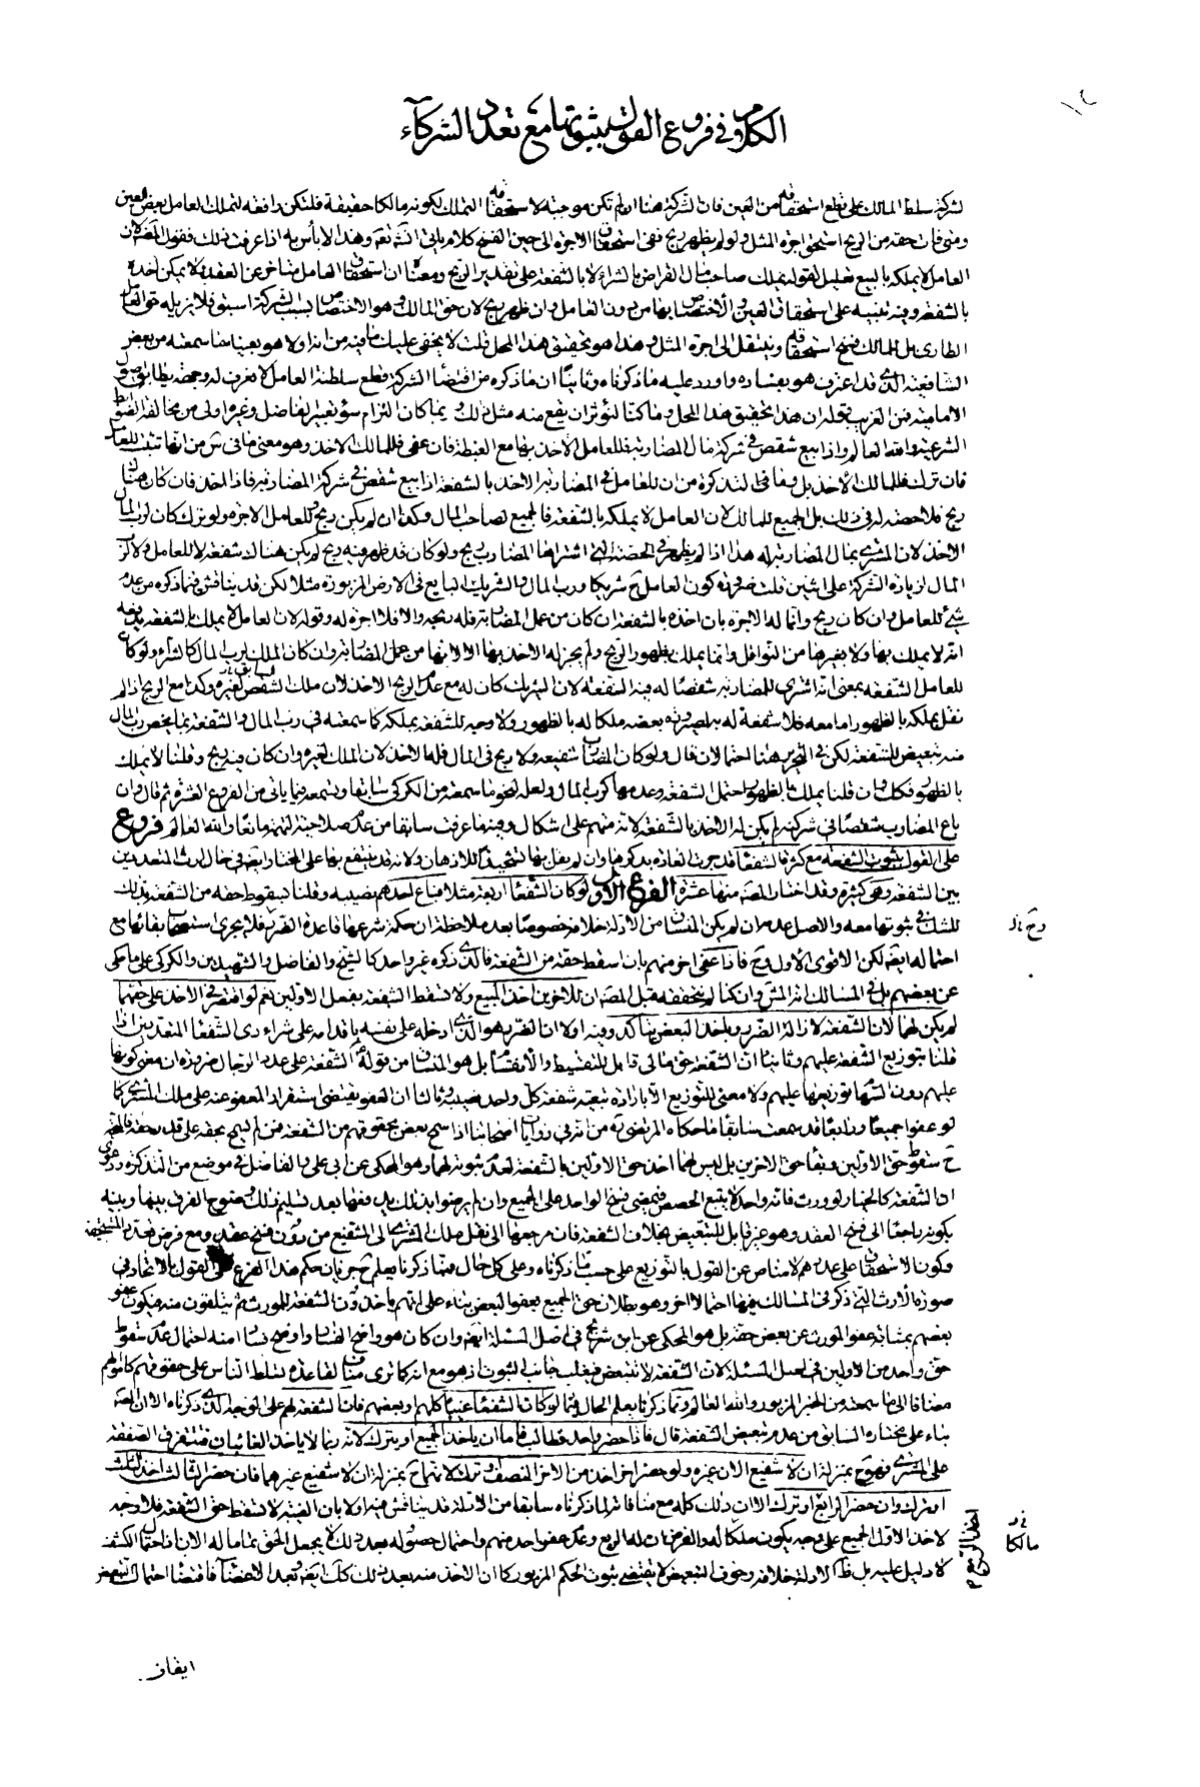 الكلام في فروع القول بثبوتها مع تعدد الشركاء
لشركة سلط المالك على قطع استحقاقه من العين فان الشركة هنا ان لم تكن موجبة لاستحقاقه التملك لكونه مالكا حقيقة فلتكن دافعة لتملك العامل بعض العين
ومتى فات حقه من الربح استحق اجرة المثل ولو لم يظهر ربح ففي استحقاق الاجرة الى حين الفسخ كلام ياتي انشاء الله تعالى وهذا لا باس به اذا عرفت ذلك فقول المصنف لان
العامل لا يملكه بالبيع تعليل لقوله يملك صاحب مال القراض بالشراء لا بالشفعة على تقدير الربح ومعناه ان استحقاق العامل متاخر عن العقد فلا يمكن اخذه
بالشفعة وفيه تنبيه على استحقاق العين والاختصاص بها من دون العامل وان ظهر ربح لان حق المالك وهو الاختصاص بسبب الشركة اسبق فلا يزيله حق العامل
الطاري بل للمالك فسخ استحقاقه وينتقل الى اجرة المثل وهذا هو تحقيق هذا المحل قلت لا يخفى عليك ما فيه من انه اولا هو بعينه ما سمعته من بعض
الشافعية الذي قد اعترف هو بفساده واورد عليه ما ذكرناه وثانيا ان ما ذكره من اقتضاء الشركة قطع سلطنة العامل لا نعرف له وجها يطابق اصول
الامامية فمن الغريب قوله ان هذا تحقيق هذا المحل وما كنا لنؤثر ان يقع منه مثل ذلك وربما كان التزام سوء تعبير الفاضل وغيره اولى من مخالفة الضوابط
الشرعية والله العالم واذا بيع شقص في شركة مال المضاربة فللعامل الاخذ بها مع الغبطة فان عفى فللمالك الاخذ وهو معنى ما في ش من انها تثبت للعامل
فان ترك فللمالك الاخذ بل وما في التذكرة من ان للعامل في المضاربة الاخذ بالشفعة اذا بيع شقص في شركة المضاربة فاذا اخذ فان كان هناك
ربح فلا حصة له في ذلك بل الجميع للمالك لان العامل لا يملكه بالشفعة فالجميع لصاحب المال وكذا ان لم يكن ربح وللعامل الاجرة ولو ترك كان لرب المال
الاخذ لان المشترى بمال المضاربة له هذا اذا لم يظهر في الحصة التي اشتراها المضارب ربح ولو كان قد ظهر فيه ربح لم يكن هناك شفعة لا للعامل ولا لرب
المال لزيادة الشركة على اثنين قلت ضرورة كون العامل ح شريكا ورب المال والشريك البايع في الارض المزبورة مثلا لكن قد يناقش فيما ذكره من عدم
شيء للعامل وان كان ربح وانما له الاجرة بان اخذه بالشفعة ان كان من عمل المضاربة فله ربحه والا فلا اجرة له وقوله لان العامل لا يملك بالشفعة
انه لا يملك بها ولا بغيرها من النواقل وانما يملك بظهور الربح ولم يجز له الاخذ بها الا لانها من عمل المضاربة وان كان الملك لرب المال كالشراء ولو كان
للعامل الشفعة بمعنى انه اشترى للمضاربة شقصا له فيه الشفعة لانه الشريك كان له مع عدم الربح الاخذ لان ملك الشقص لغيره وكذا مع الربح اذا لم
نقل يملكه بالظهور اما معه فلا شفعة له به لصيرورة بعضه ملكا له بالظهور ولا وجه للشفعة بملكه كما سمعته في رب المال والشفعة بما يخص رب المال
منه تبعيض للشفعة لكن في التحرير هنا احتمالان قال ولو كان المضارب شفيعه ولا ربح في المال فله الاخذ لان الملك لغيره وان كان فيه ربح وقلنا لا يملك
بالظهور فكذلك وان قلنا يملك بالظهور احتمل الشفعة وعدمها كرب المال ولعله لنحو ما سمعته من الكركى سابقا وتسمعه فيما ياتي من الفروع العشرة ثم قال وان
باع المضارب شقصا في شركته لم يكن له الاخذ بالشفعة لانه متهم على اشكال وفيه ما عرفت سابقا من عدم صلاحية التهمة مانعا والله العالم فروع
على القول بثبوت الشفعة مع كثرة الشفعاء قد جرت العادة بذكرها وان لم يقل بها تشحيذا للاذهان ولانه قد ينتفع بها على المختار ايضا في حال ارث المتعددين
بين الشفعة وهي كثيرة وقد اختار المصنف منها عشرة الفرع الاول لو كان الشفعاء اربعة مثلا فباع احدهم نصيبه وقلنا بسقوط حقه من الشفعة بذلك
للشك في ثبوتها معه والاصل عدمه ان لم يكن المنساق من الادلة خلافه خصوصا بعد ملاحظة ان حكمة شرعها قاعدة الضرر فلا يجرى استصحاب بقائها مع
احتماله ايضا لكن الاقوى الاول وح فاذا عفى اخر منهم بان اسقط حقه من الشفعة فالذي ذكره غير واحد كالشيخ والفاضل والشهيدين والكركى على ما حكى
عن بعضهم بل في المسالك انه المشهور وان كنا لم نتحققه قبل المصنف ان للاخرين اخذ المبيع ولا تسقط الشفعة بفعل الاولين نعم لو اقتصر في الاخذ على حقهما
لم يكن لهما لان الشفعة لازالة الضرر وباخذ البعض يتاكد وفيه اولا ان الضرر هو الذي ادخله على نفسه باقدامه على شراء ذى الشفعاء المتعددين اذا
قلنا بتوزيع الشفعة عليهم وثانيا ان الشفعة حق مالي قابل للتقسيط والانقسام بل هو المنساق من قوله الشفعة على عدد الرجال ضرورة ان معنى كونها
عليهم دون السهام توزيعها عليهم ولا معنى للتوزيع الا بارادة تبعية شفعة كل واحد نصيبه وثالثا ان العفو يقتضى استقرار المعفو عنه على ملك المشترى كما
لو عفوا جميعا ورابعا قد سمعت سابقا ما حكاه المرتضى ره من انه في روايات اصحابنا اذا سمح بعض بحقوقهم من الشفعة فمن لم يسمح بحقه على قدر حقه
ح سقوط حق الاولين وبقاء حق الاخرين بل ليس لهما اخذ حق الاولين بالشفعة لعدم ثبوته لهما وهو المحكى عن ابي علي والفاضل في موضع من التذكرة ودعوى
ان الشفعة كالخيار لو ورث فانه واحد لا يتبع الحصص فيمضى فسخ الواحد على الجميع وان لم يرضوا بذلك يدفعها بعد تسليم ذلك وضوح الفرق بينها وبينه
بكونه راجعا الى فسخ العقد وهو غير قابل للتبعيض بخلاف الشفعة فان مرجعها الى نقل ملك المشترى الى الشفيع من دون فسخ عقد ومع فرض تعدد المستحقين
وكون الاستحقاق على عددهم لا مناص عن القول بالتوزيع على حسب ما ذكرناه وعلى كل حال فمما ذكرنا يعلم ح جريان حكم هذا الفرع على القول بالاتحاد في
صورة الارث التي ذكر في المسالك فيها احتمالا اخر وهو بطلان حق الجميع بعفو البعض بناء على انهم ياخذون الشفعة للمورث ثم يتلقون منه فيكون عفو
بعضهم بمثابة عفو المورث عن بعض حقه بل هو المحكى عن ابن شريح في اصل المسئلة ايضا وان كان هو واضح الفساد واوضح فسادا منه احتمال عدم سقوط
حق واحد من الاولين في اصل المسئلة لان الشفعة لا تتبعض فيغلب جانب الثبوت اذ هو مع انه كما ترى مناف لقاعدة تسلط الناس على حقوقهم كاموالهم
مضافا الى ما سمعته من الخبر المزبور والله العالم ومما ذكرنا يعلم الحال فيما لو كان الشفعاء غيبا كلهم او بعضهم فان الشفعة لهم على الوجه الذي ذكرناه الا ان المصنف
بناء على مختاره السابق من عدم تبعيض الشفعة قال فاذا حضر واحد فطالب فاما ان ياخذ الجميع او يترك لانه ربما لا ياخذ الغائبان فتتفرق الصفقة
على المشترى فهو ح بمنزلة ان لا شفيع الا ان غيره ولو حضر اخر اخذ من الاخر النصف او ترك لانهما ح بمنزلة ان لا شفيع غيرهما فان حضر الثالث اخذ الثلث
او ترك وان حضر الرابع او ترك الا ان ذلك كله مع منافاته لما ذكرناه سابقا من الادلة قد يناقش فيه اولا بان الغيبة لا تسقط حق الشفعة فلا وجه
لاخذ الاول الجميع على وجه يكون ملكا له والفرض ان له الربع وعدم عفو احد منهم واحتمال حصوله بعد ذلك لا يجعل الحق بتمامه له الان واحتمال الكشف
لا دليل عليه بل ظاهر الادلة خلافه وخوف التبعيض لا يقتضى ثبوت الحكم المزبور كما ان الاخذ منه بعد ذلك كذلك ايضا بعد
وح خ ل
مالكا